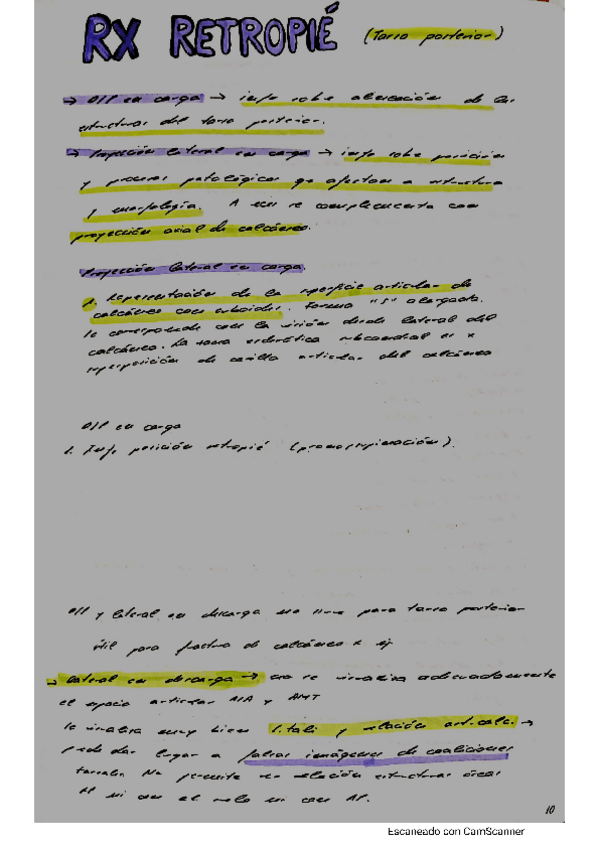 RX RETROPIÉ (Tarso posterior)
→ D/P en carga → info sobre alineación de las
estructuras del tarso posterior.
→ Proyección lateral en carga → info sobre posición
y procesos patológicos que afectan a estructura
y morfología. A veces se complementa con
proyección axial de calcáneo.
Proyección lateral en carga.
1. Representación de la superficie articular de
calcáneo con cuboides. Forma "S" alargada.
Se corresponde con la visión desde lateral del
calcáneo. La zona esclerótica subcondral es x
superposición de carilla articular del calcáneo
D/P en carga
1. Info posición retropié (pronosupinación).
D/P y lateral en descarga no sirve para tarso posterior
útil para fractura de calcáneo x ej
→ lateral en descarga → no se visualiza adecuadamente
el espacio articular y AMT
Se visualiza muy bien S. tali y relación art. calc. →
puede dar lugar a falsas imágenes de coaliciones
tarsales. No permite ver relación estructuras óseas
ni con el suelo ni con AP.
10
Escaneado con CamScanner